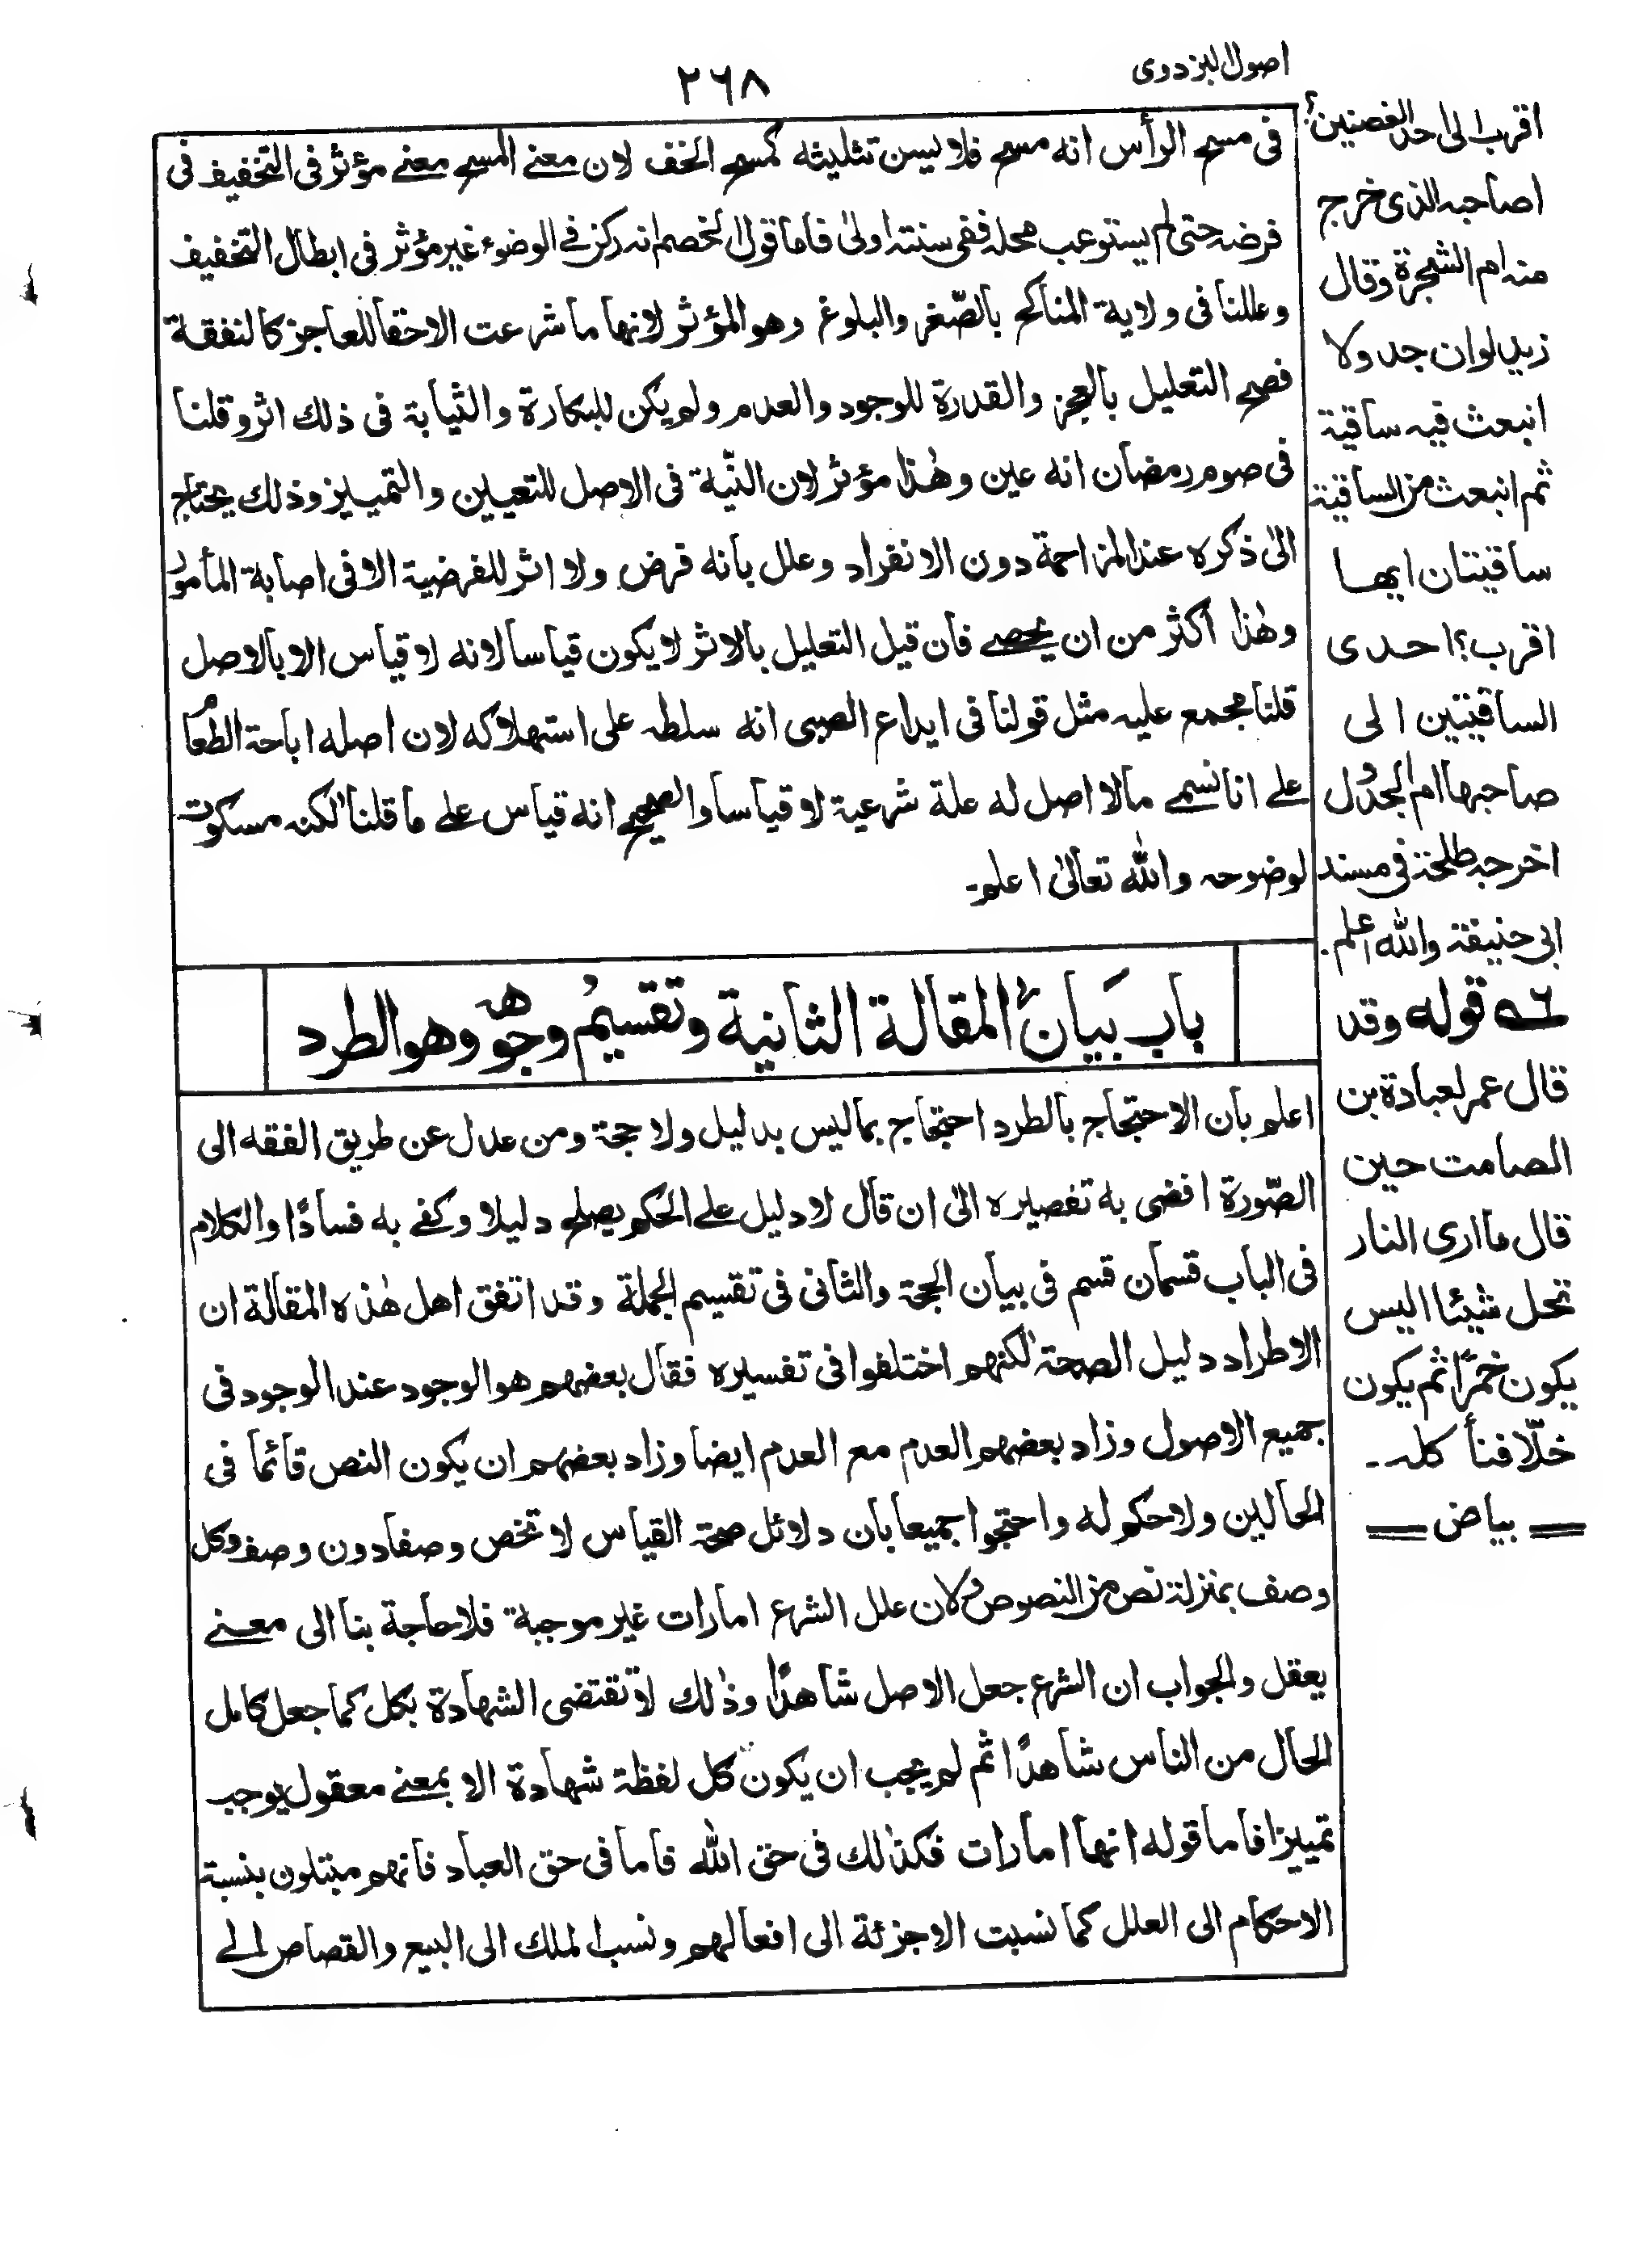 اصول البزدوى
٢٦٨
فى مسح الرأس انه مسح فلا يسن تثليثه كمسح الخف لان معنى المسح معنى مؤثر فى التخفيف فى
فرضه حتى لم يستوعب محله ففى سنته اولىٰ فاما قول الخصم انه ركن فى الوضوء غير مؤثر فى ابطال التخفيف
وعللنا فى ولاية المناكح بالصّغر والبلوغ وهو المؤثر لانها ما شرعت الا حقا للعاجز كالنفقة
فصح التعليل بالعجز والقدرة للوجود والعدم ولم يكن للبكارة والثيابة فى ذلك اثر وقلنا
فى صوم رمضان انه عين وهٰذا مؤثر لان النّية فى الاصل للتعيين والتمييز وذلك يحتاج
الىٰ ذكره عند المزاحمة دون الانفراد وعلل بانه فرض ولا اثر للفرضية الا فى اصابة المأمور
وهٰذا اكثر من ان يحصى فان قيل التعليل بالاثر لا يكون قياسا لانه لا قياس الا بالاصل
قلنا مجمع عليه مثل قولنا فى ايداع الصبى انه سلطه على استهلاكه لان اصله اباحة الطعام
على انا نسمى مالا اصل له علة شرعية لا قياسا والصحيح انه قياس على ما قلنا لكنه مسكوت
لوضوحه والله تعالىٰ اعلم۔
باب بيان المقالة الثانية وتقسيم وجوهه وهو الطرد
اعلم بان الاحتجاج بالطرد احتجاج بما ليس بدليل ولا حجة ومن عدل عن طريق الفقه الى
الصّورة افضى به تقصيره الىٰ ان قال لا دليل على الحكم يصلح دليلا وكفى به فسادًا والكلام
فى الباب قسمان قسم فى بيان الحجة والثانى فى تقسيم الجملة وقد اتفق اهل هٰذه المقالة ان
الاطراد دليل الصحة لٰكنهم اختلفوا فى تفسيره فقال بعضهم هو الوجود عند الوجود فى
جميع الاصول وزاد بعضهم العدم مع العدم ايضا وزاد بعضهم ان يكون النص قائما فى
الحالين ولا حكم له واحتجوا جميعا بان دلائل صحة القياس لا تخص وصفا دون وصف وكل
وصف بمنزلة نص من النصوص ولان علل الشرع امارات غير موجبة فلا حاجة بنا الى معنى
يعقل والجواب ان الشرع جعل الاصل شاهدًا وذٰلك لا تقتضى الشهادة بكل كما جعل كامل
الحال من الناس شاهدًا ثم لم يجب ان يكون كل لفظة شهادة الا بمعنى معقول يوجب
تمييزا فاما قوله انها امارات فكذٰلك فى حق الله فاما فى حق العباد فانهم مبتلون بنسبة
الاحكام الى العلل كما نسبت الاجزئة الى افعالهم ونسب الملك الى البيع والقصاص الى
اقرب الى احد الغصنين
اصاحبه الذى خرج
منه ام الشجرة وقال
زيد لو ان جدولا
انبعث فيه ساقية
ثم انبعث من الساقية
ساقيتان ايها
اقرب؟ احدى
الساقيتين الى
صاحبها ام الجدول
اخرجه طلحة فى مسند
ابى حنيفة والله اعلم۔
٥٦ قوله وقد
قال عمر لعبادة بن
الصامت حين
قال ما ارى النار
تحل شيئا اليس
يكون خمرًا ثم يكون
خلّا فنأكله۔
بياض